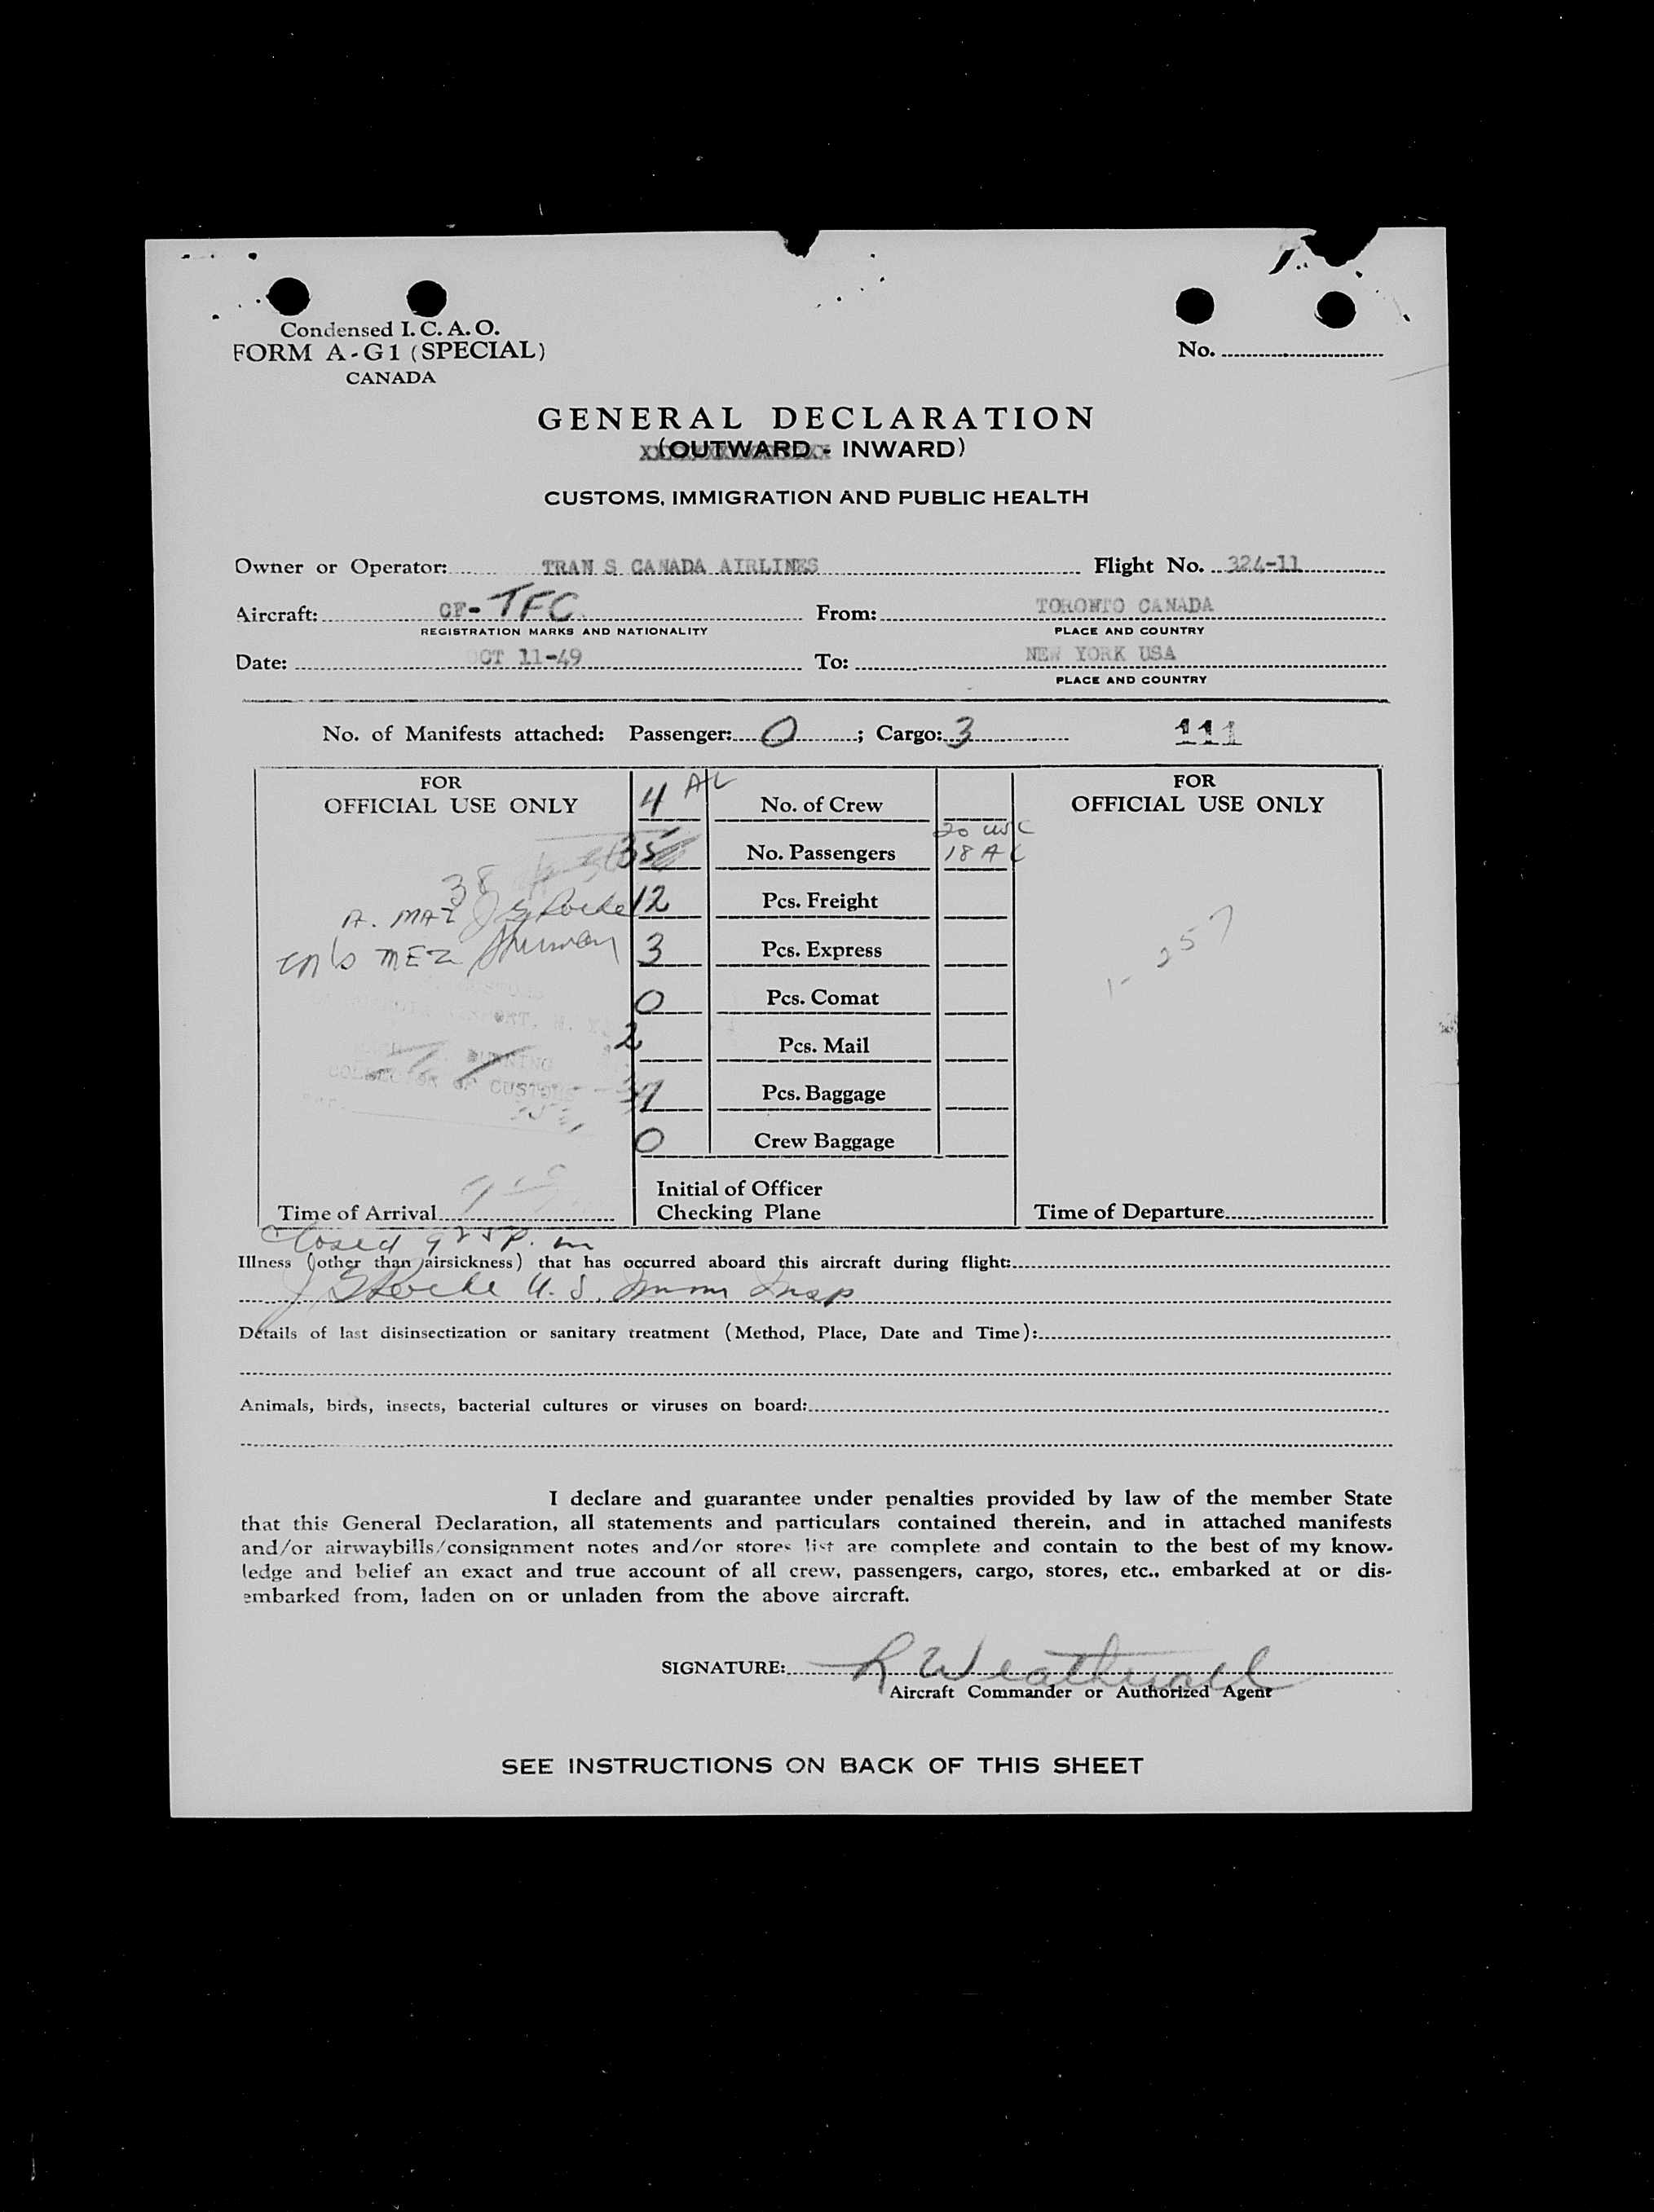 Condensed I. C. A. O.
FORM A-G1 (SPECIAL)
CANADA
No.
GENERAL DECLARATION
(OUTWARD - INWARD)
CUSTOMS, IMMIGRATION AND PUBLIC HEALTH
Owner or Operator: TRAN S CANADA AIRLINES Flight No. 324-11
Aircraft: CF- TFC From: TORONTO CANADA
REGISTRATION MARKS AND NATIONALITY PLACE AND COUNTRY
Date: OCT 11-49 To: NEW YORK USA
PLACE AND COUNTRY
No. of Manifests attached: Passenger: 0 ; Cargo: 3 111
FOR
OFFICIAL USE ONLY
4 AL No. of Crew
FOR
OFFICIAL USE ONLY
20 USC
35 No. Passengers 18 AL
38
A. MAZ
12 Pcs. Freight
MEZ
3 Pcs. Express
1-257
0 Pcs. Comat
2 Pcs. Mail
COLLECTOR OF CUSTOMS
37 Pcs. Baggage
0 Crew Baggage
Time of Arrival
Initial of Officer
Checking Plane
Time of Departure
Closed 9 25 P. m
Illness (other than airsickness) that has occurred aboard this aircraft during flight:
U. S. Imm Insp
Details of last disinsectization or sanitary treatment (Method, Place, Date and Time):
Animals, birds, insects, bacterial cultures or viruses on board:
I declare and guarantee under penalties provided by law of the member State
that this General Declaration, all statements and particulars contained therein, and in attached manifests
and/or airwaybills/consignment notes and/or stores list are complete and contain to the best of my know-
ledge and belief an exact and true account of all crew, passengers, cargo, stores, etc., embarked at or dis-
embarked from, laden on or unladen from the above aircraft.
SIGNATURE:
Aircraft Commander or Authorized Agent
SEE INSTRUCTIONS ON BACK OF THIS SHEET